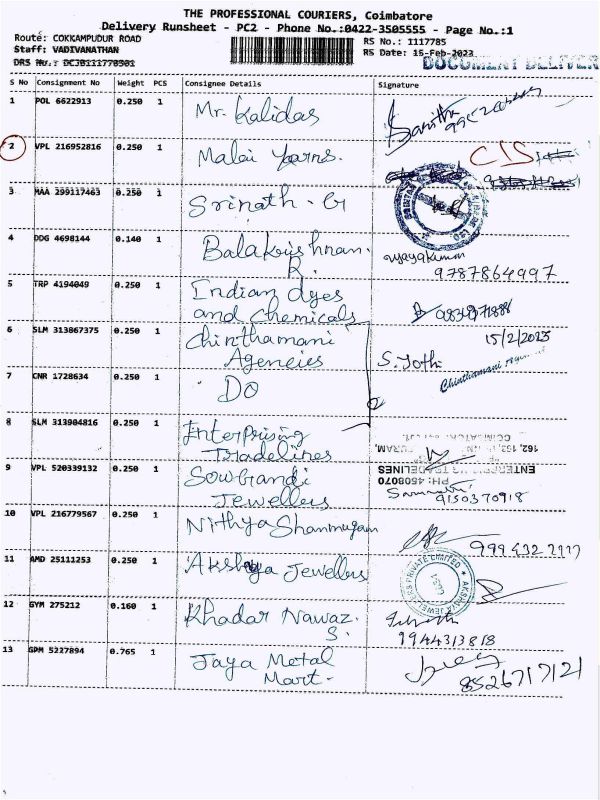 THE PROFESSIONAL COURIERS, Coimbatore
Delivery Runsheet - PC2 - Phone No.:0422-3505555 - Page No.:1
Route: COKKAMPUDUR ROAD
RS No.: 1117785
Staff: VADIVANATHAN
RS Date: 15-Feb-2023
DOCUMENT DELIVER
S No Consignment No Weight PCS Consignee Details Signature
1 POL 6622913 0.250 1 Mr. Kalidas
2 VPL 216952816 0.250 1 Malai Yarns.
3 MAA 299117463 0.250 1 Srinath - G
4 DDG 4698144 0.140 1 Balakrishnan.
R.
vijayakumar
9787864997
5 TRP 4194049 0.250 1 Indian dyes
and Chemicals
6 SLM 313867375 0.250 1 Chinthamani
Agencies
15/2/2023
S. Jothi
Chinthamani
7 CNR 1728634 0.250 1 DO
8 SLM 313904816 0.250 1 Enterprising
Tradelines
ENTERPRISING TRADELINES
PH: 4508070
9 VPL 520339132 0.250 1 Sowbrandi
Jewellers
9150370918
10 VPL 216779567 0.250 1 Nithya Shanmugam
11 AMD 25111253 0.250 1 Akshaya Jewellers
AKSHAYA JEWELLERS PRIVATE LIMITED
12 GYM 275212 0.160 1 Khadar Nawaz.
S.
9944313818
13 GPM 5227894 0.765 1 Jaya Metal
Mart.
8526717121